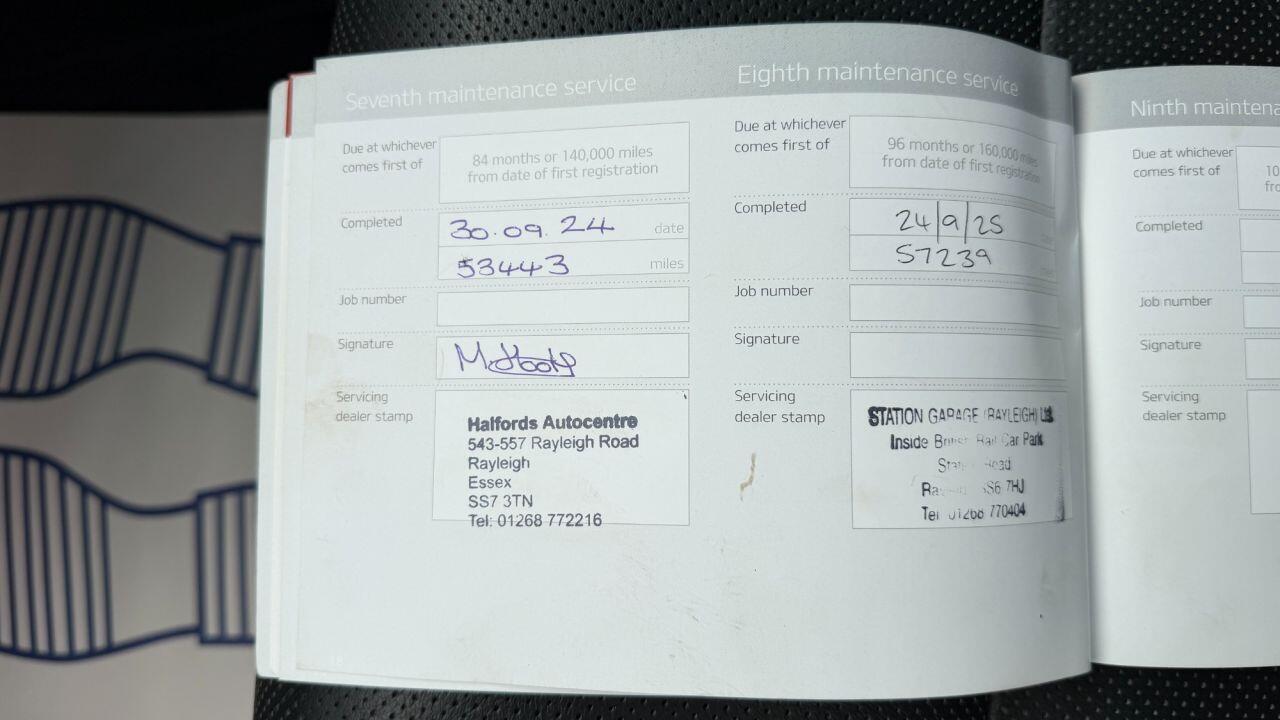 Seventh maintenance service
Due at whichever
comes first of
84 months or 140,000 miles
from date of first registration
Completed
30.09.24 date
53443 miles
Job number
Signature
Servicing
dealer stamp
Halfords Autocentre
543-557 Rayleigh Road
Rayleigh
Essex
SS7 3TN
Tel: 01268 772216
Eighth maintenance service
Due at whichever
comes first of
96 months or 160,000 miles
from date of first registration
Completed
24/9/25
57239
Job number
Signature
Servicing
dealer stamp
STATION GARAGE (RAYLEIGH) Ltd
Inside British Rail Car Park
SS6 7HJ
Tel 01268 770404
Ninth maintena
Due at whichever
comes first of
10
fro
Completed
Job number
Signature
Servicing
dealer stamp